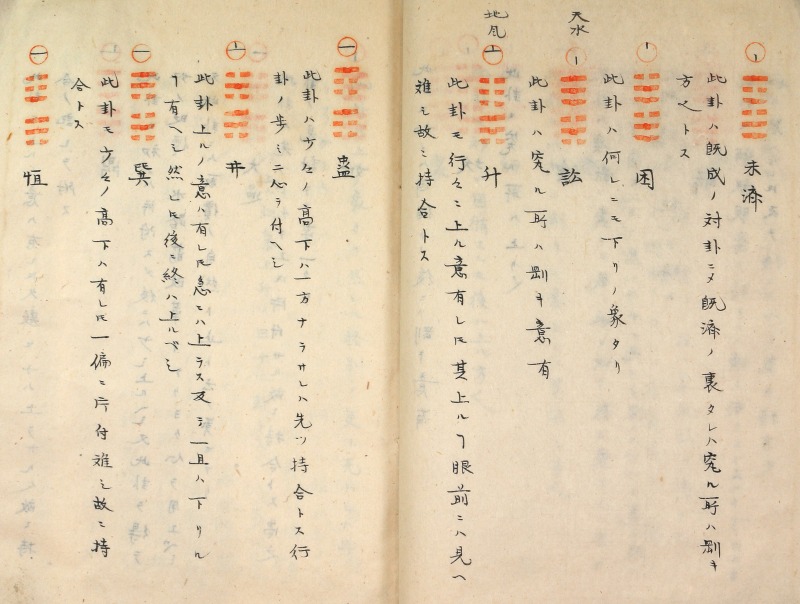 未済
此卦ハ既成ノ対卦ニメ既済ノ裏タレハ究ル所ハ剝キ
方ヘトス
困
此卦ハ何レニモ下リノ象タリ
天水
訟
此卦ハ究ル所ハ剝キ意有
地風
升
此卦モ行々ニ上ル意有レ𪜈其上ルヿ眼前ニハ見ヘ
難シ故ニ持合トス
蠱
此卦ハ少々ノ高下ハ一方ナラサレハ先ツ持合トス行
卦ノ歩ミニ心ヲ付ヘシ
井
此卦上ルノ意ハ有レ𪜈急ニハ上ラス及ヨ一且ハ下リル
ヿ有ヘシ然レ𪜈後ニ終ハ上ルベシ
巽
此卦モ少々ノ高下ハ有レ𪜈一偏ニ片付難シ故ニ持
合トス
恒